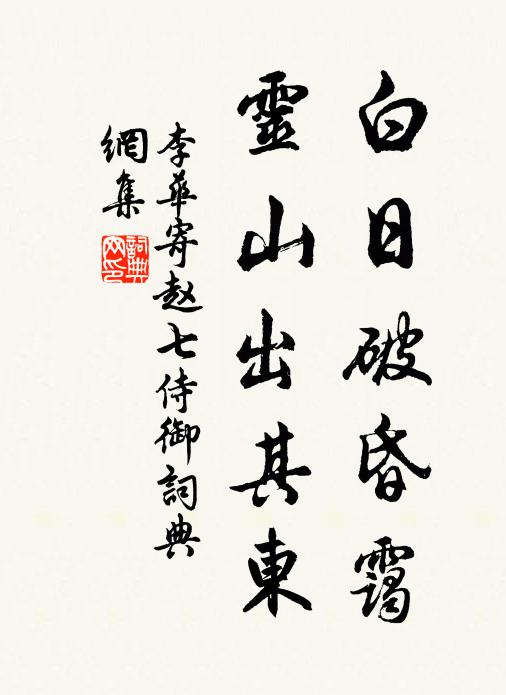 白日破昏靄
靈山出其東
李華寄赵七侍御詞典
網集
詞典
网印